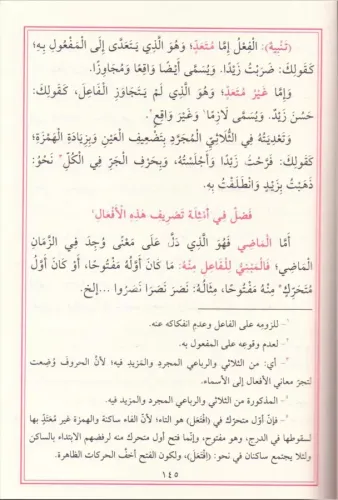 (تَنْبِيهٌ): الْفِعْلُ إِمَّا مُتَعَدٍّ؛ وَهُوَ الَّذِي يَتَعَدَّى إِلَى الْمَفْعُولِ بِهِ؛
كَقَوْلِكَ: ضَرَبْتُ زَيْدًا. وَيُسَمَّى أَيْضًا وَاقِعًا وَمُجَاوِزًا.
وَإِمَّا غَيْرُ مُتَعَدٍّ؛ وَهُوَ الَّذِي لَمْ يَتَجَاوَزِ الْفَاعِلَ، كَقَوْلِكَ:
حَسُنَ زَيْدٌ. وَيُسَمَّى لَازِمًا١ وَغَيْرَ وَاقِعٍ٢.
وَتَعْدِيَتُهُ فِي الثُّلَاثِيِّ الْمُجَرَّدِ بِتَضْعِيفِ الْعَيْنِ وَبِزِيَادَةِ الْهَمْزَةِ؛
كَقَوْلِكَ: فَرَّحْتُ زَيْدًا وَأَجْلَسْتُهُ، وَبِحَرْفِ الْجَرِّ فِي الْكُلِّ٣ نَحْوُ:
ذَهَبْتُ بِزَيْدٍ وَانْطَلَقْتُ بِهِ.
فَصْلٌ فِي أَمْثِلَةِ تَصْرِيفِ هَذِهِ الْأَفْعَالِ٤
أَمَّا الْمَاضِي فَهُوَ الَّذِي دَلَّ عَلَى مَعْنًى وُجِدَ فِي الزَّمَانِ
الْمَاضِي؛ فَالْمَبْنِيُّ لِلْفَاعِلِ مِنْهُ: مَا كَانَ أَوَّلُهُ مَفْتُوحًا، أَوْ كَانَ أَوَّلُ
مُتَحَرِّكٍ٥ مِنْهُ مَفْتُوحًا، مِثَالُهُ: نَصَرَ نَصَرَا نَصَرُوا ...إلخ.
١- للزومِهِ على الفاعل وعدمِ انفكاكه عنه.
٢- لعدم وقوعه على المفعول به.
٣- أي: من الثلاثي والرباعي المجرد والمزيد فيه؛ لأنّ الحروفَ وُضِعت
لتجرّ معاني الأفعال إلى الأسماء.
٤- المذكورة من الثلاثي والرباعي المجرد والمزيد فيه.
٥- فإنّ أوّل متحرّك في (افْتَعَلَ) هو التاء؛ لأنّ الفاء ساكنة والهمزة غير مُعْتَدٍّ بها
لسقوطها في الدرج، وهو مفتوح، وإنّما فتح أول متحرك منه لرفضهم الابتداء بالساكن
ولئلا يجتمع ساكنان في نحو: (افْتَعَلَ)، ولكون الفتح أخفّ الحركات الظاهرة.
١٤٥